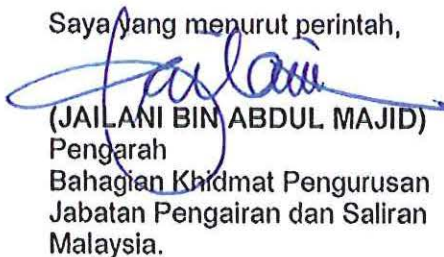 Saya yang menurut perintah,
(JAILANI BIN ABDUL MAJID)
Pengarah
Bahagian Khidmat Pengurusan
Jabatan Pengairan dan Saliran
Malaysia.